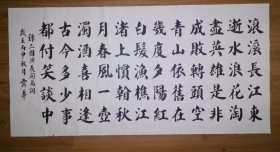 滾滾長江東
逝水浪花淘
盡英雄是非
成敗轉頭空
青山依舊在
幾度夕陽紅
白髮漁樵江
渚上慣看秋
月春風一壺
濁酒喜相逢
古今多少事
都付笑談中
錄三國演義
丙申秋月